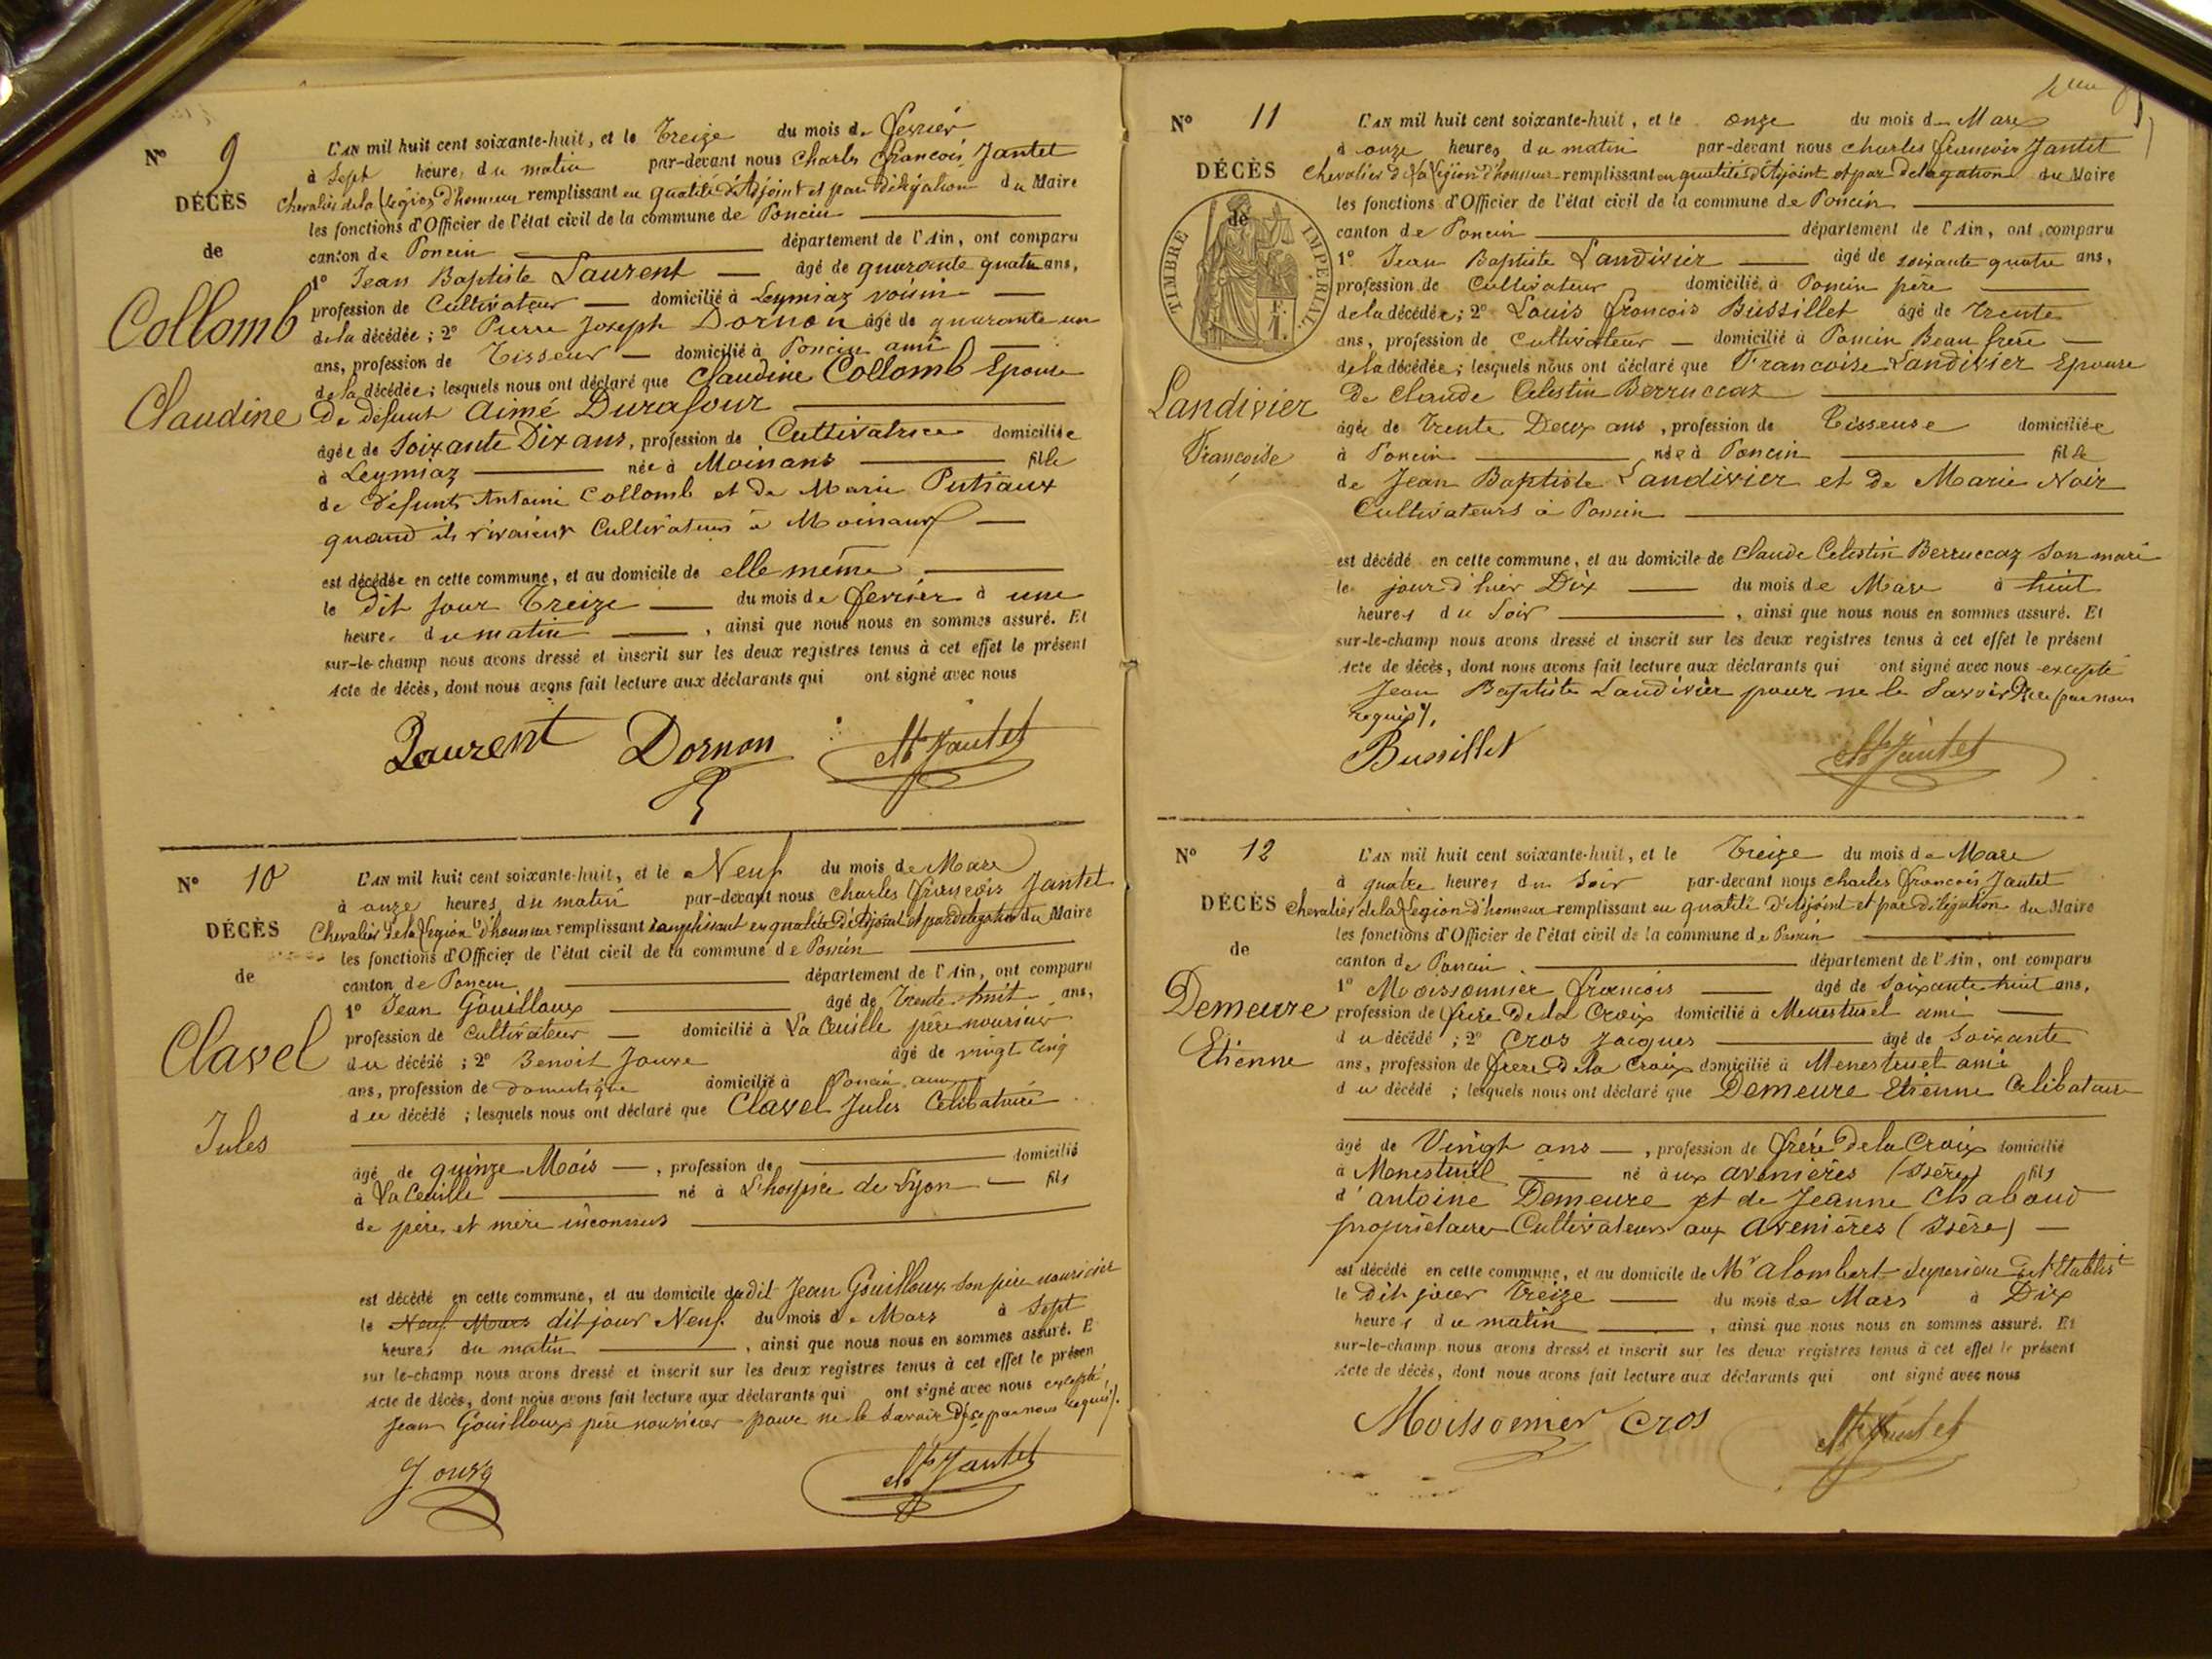 N° 9
DÉCÈS
de
Collomb
Claudine
L'AN mil huit cent soixante-huit, et le Treize du mois de fevrier
à Sept heures du matin par-devant nous Charles François Jantet
Chevalier de la Légion d'honneur remplissant en qualité d'Adjoint et par délégation du Maire
les fonctions d'Officier de l'état civil de la commune de Poncin
canton de Poncin département de l'Ain, ont comparu
1° Jean Baptiste Laurent âgé de quarante quatre ans,
profession de Cultivateur domicilié à Leymiaz voisin
de la décédée ; 2° Pierre Joseph Dornon âgé de quarante un
ans, profession de Tisseur domicilié à Poncin ami
de la décédée ; lesquels nous ont déclaré que Claudine Collomb Epouse
De défunt Aimé Durafour
âgée de Soixante Dix ans, profession de Cultivatrice domiciliée
à Leymiaz née à Moinans fille
de défunts Antoine Collomb et de Marie Putiaux
quand ils vivaient Cultivateurs à Moinans
est décédée en cette commune, et au domicile de elle même
le dit jour Treize du mois de fevrier à une
heure du matin , ainsi que nous nous en sommes assuré. Et
sur-le-champ nous avons dressé et inscrit sur les deux registres tenus à cet effet le présent
Acte de décès, dont nous avons fait lecture aux déclarants qui ont signé avec nous
Laurent Dornon Jantet
N° 10
DÉCÈS
de
Clavel
Jules
L'AN mil huit cent soixante-huit, et le Neuf du mois de Mars
à onze heures du matin par-devant nous Charles François Jantet
Chevalier de la Légion d'honneur remplissant remplissant en qualité d'Adjoint et par délégation du Maire
les fonctions d'Officier de l'état civil de la commune de Poncin
canton de Poncin département de l'Ain, ont comparu
1° Jean Gouilloux âgé de Trente huit ans,
profession de Cultivateur domicilié à La Cueille père nouricier
du décédé ; 2° Benoit Jouve âgé de vingt cinq
ans, profession de domestique domicilié à Poncin ami
du décédé ; lesquels nous ont déclaré que Clavel Jules Célibataire
âgé de quinze Mois , profession de domicilié
à La Cueille né à L'hospice de Lyon fils
de père et mère inconnus
est décédé en cette commune, et au domicile du dit Jean Gouilloux son père nouricier
le Neuf Mars dit jour Neuf du mois de Mars à Sept
heures du matin , ainsi que nous nous en sommes assuré. E
sur le-champ nous avons dressé et inscrit sur les deux registres tenus à cet effet le présen
Acte de décès, dont nous avons fait lecture aux déclarants qui ont signé avec nous excepté
Jean Gouilloux père nouricier pour ne le savoir de ce par nous requis
Jantet
N° 11
DÉCÈS
de
TIMBRE IMPÉRIAL
Landivier
Françoise
L'AN mil huit cent soixante-huit, et le onze du mois de Mars
à onze heures du matin par-devant nous charles francois Jantet
Chevalier de la légion d'honneur remplissant en qualité d'Adjoint et par délégation du Maire
les fonctions d'Officier de l'état civil de la commune de Poncin
canton de Poncin département de l'Ain, ont comparu
1° Jean Baptiste Landivier âgé de soixante quatre ans,
profession de Cultivateur domicilié à Poncin père
de la décédée ; 2° Louis francois Bussillet âgé de trente
ans, profession de Cultivateur domicilié à Poncin Beau frère
de la décédée ; lesquels nous ont déclaré que Francoise Landivier Epouse
De Claude Celestin Berruccaz
âgée de Trente Deux ans , profession de Tisseuse domiciliée
à Poncin née à Poncin fille
de Jean Baptiste Landivier et de Marie Noir
Cultivateurs à Poncin
est décédé en cette commune, et au domicile de Claude Celestin Berruccaz son mari
le jour d'hier Dix du mois de Mars à huit
heures du Soir , ainsi que nous nous en sommes assuré. Et
sur-le-champ nous avons dressé et inscrit sur les deux registres tenus à cet effet le présent
Acte de décès, dont nous avons fait lecture aux déclarants qui ont signé avec nous excepté
Jean Baptiste Landivier pour ne le Savoir de ce par nous
requis
Bussillet Jantet
N° 12
DÉCÈS
de
Demeure
Etienne
L'AN mil huit cent soixante-huit, et le Treize du mois de Mars
à quatre heures du Soir par-devant nous charles francois Jantet
Chevalier de la Légion d'honneur remplissant en qualité d'Adjoint et par délégation du Maire
les fonctions d'Officier de l'état civil de la commune de Poncin
canton de Poncin département de l'Ain, ont comparu
1° Moissonnier francois âgé de Soixante huit ans,
profession de frère de la Croix domicilié à Menestruel ami
du décédé ; 2° Cros Jacques âgé de Soixante
ans, profession de frere de la Croix domicilié à Menestruel ami
du décédé ; lesquels nous ont déclaré que Demeure Etienne Célibataire
âgé de Vingt ans , profession de frère de la Croix domicilié
à Menestruel né aux avenières (Isère) fils
d'antoine Demeure et de Jeanne Chaboud
propriétaires Cultivateurs aux avenières (Isère)
est décédé en cette commune, et au domicile de Mr alombert Supérieur
le Dit jour Treize du mois de Mars à Dix
heures du matin , ainsi que nous nous en sommes assuré. Et
sur-le-champ nous avons dressé et inscrit sur les deux registres tenus à cet effet le présent
Acte de décès, dont nous avons fait lecture aux déclarants qui ont signé avec nous
Moissonnier Cros Jantet